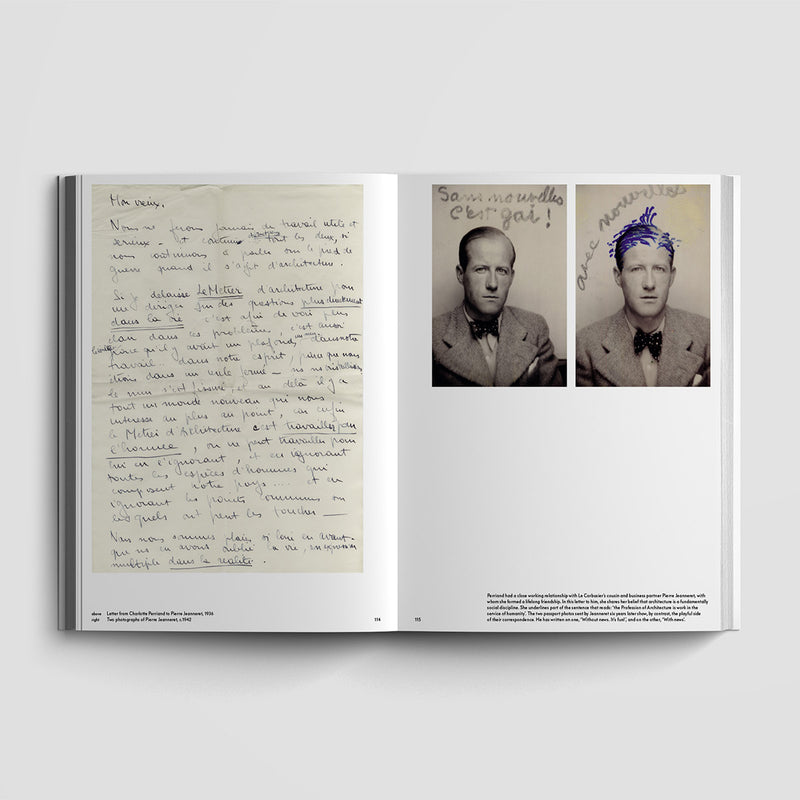 Mon vieux.
Nous ne ferons jamais du travail utile et
sérieux - et continu tout les deux, si
nous continuons à parler sur le pied de
guerre quand il s'agit d'architecture.
Si je délaisse Le Métier d'architecture pour
me diriger sur des questions plus directement
dans la vie c'est afin de voir plus
clair dans ces problèmes, c'est aussi
parce qu'il y avait un plafond dans notre
travail... dans notre esprit, parce que nous
étions dans un cercle fermé -
le mur s'est fissuré, et au delà il y a
tout un monde nouveau qui nous
intéresse au plus au point, car enfin
le Métier d'Architecture c'est travailler pour
l'homme, on ne peut travailler pour
lui en l'ignorant, et en ignorant
toutes les espèces d'hommes qui
composent notre pays.... et en
ignorant les points communs sur
lesquels
Nous nous sommes si loin en avant
que ns en avons oublié la vie, son expression
multiple dans la réalité.
above Letter from Charlotte Perriand to Pierre Jeanneret, 1936
right Two photographs of Pierre Jeanneret, c.1942
114
Sans nouvelles
C'est gai !
avec nouvelles
115
Perriand had a close working relationship with Le Corbusier's cousin and business partner Pierre Jeanneret, with
whom she formed a lifelong friendship. In this letter to him, she shares her belief that architecture is a fundamentally
social discipline. She underlines part of the sentence that reads: 'the Profession of Architecture is work in the
service of humanity'. The two passport photos sent by Jeanneret six years later show, by contrast, the playful side
of their correspondence. He has written on one, 'Without news. It's fun!', and on the other, 'With news'.